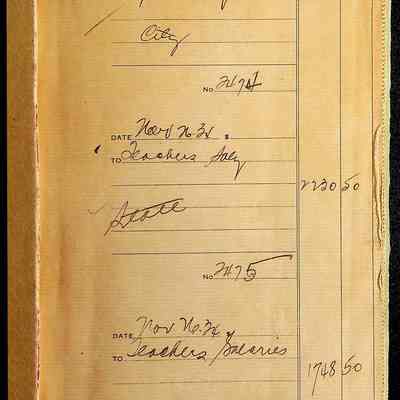 City
No. 2474
DATE Nov
TO Teachers Saly
2230 50
State
No. 2475
DATE Nov
TO Teachers Salaries
1748 50